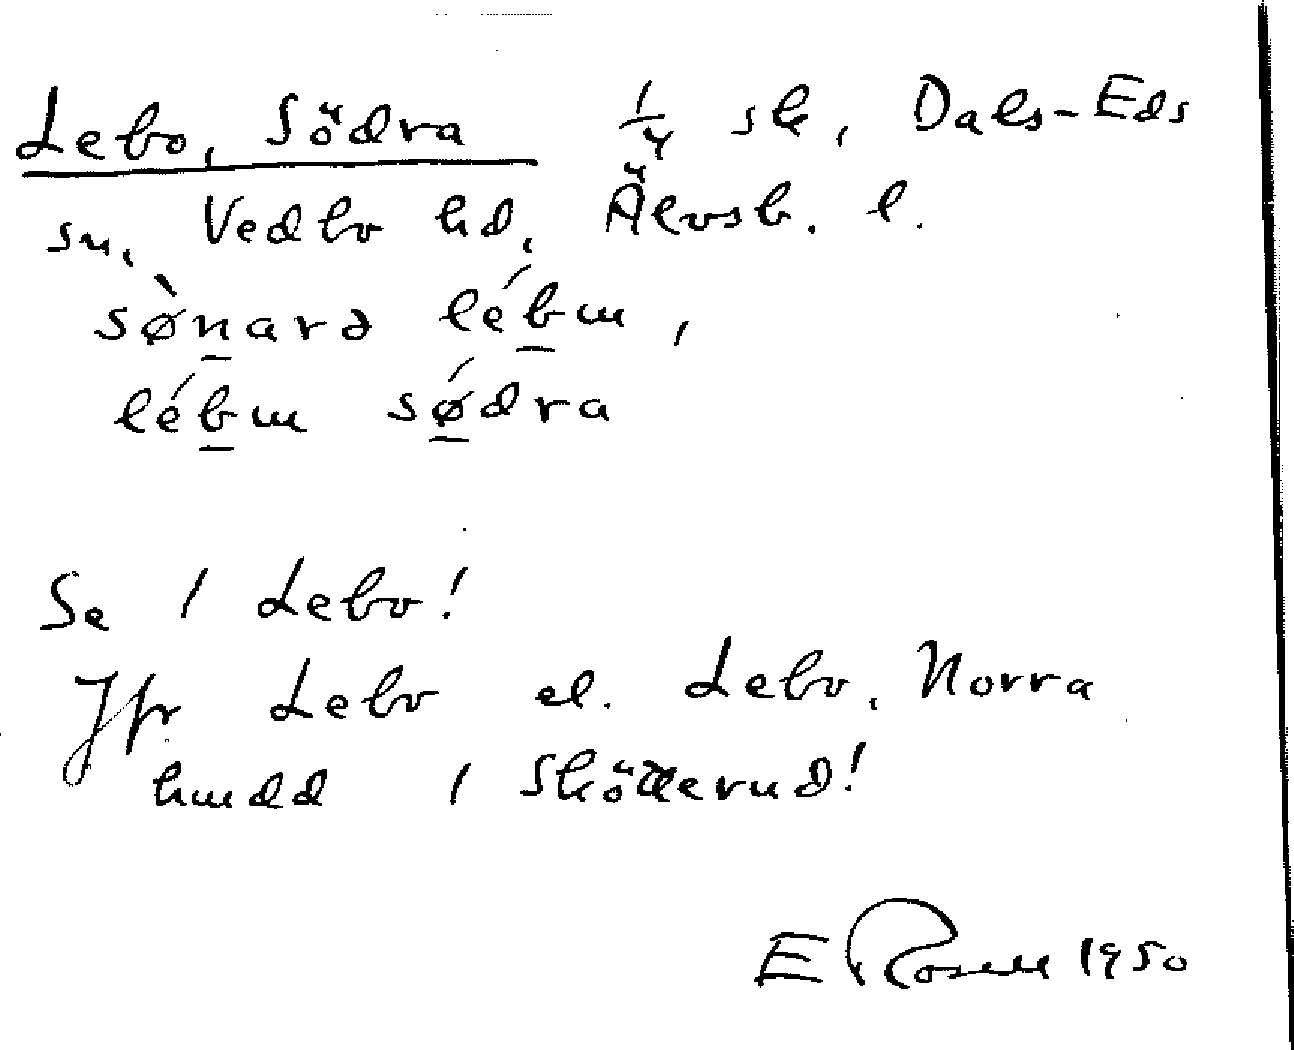 Lebo, Södra 1/4 sk, Dals-Eds
sn, Vedbo hd, Älvsb. l.
sø̀narə lébm,
lébm södra
Se 1 Lebo!
Jfr Lebo el. Lebo, Norra
hmdd 1 Skötterud!
E Rosell 1950